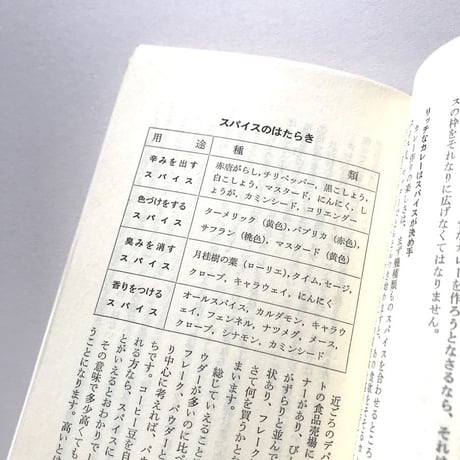 スパイスのはたらき
用途 種類
辛みを出す
スパイス
赤唐がらし,チリペッパー,黒こしょう,
白こしょう,マスタード,にんにく,し
ょうが,カミンシード,コリエンダー
色づけをする
スパイス
ターメリック(黄色),パプリカ(赤色),
サフラン(桃色),マスタード(黄色)
臭みを消す
スパイス
月桂樹の葉(ローリエ),タイム,セージ,
クローブ,キャラウェイ,にんにく
香りをつける
スパイス
オールスパイス,カルダモン,キャラウ
ェイ,フェンネル,ナツメグ,メース,
クローブ,シナモン,カミンシード
カレーを作ろうとなさるなら、それは
スの枠をそれなりに広げなくてはなりません。
リッチなカレーはスパイスが決め手
近ごろのデパ
トの食品売場に
ナーがあり、び
がずらりと並んで
状あり、フレーク
さて何を買うかとな
まいます。
総じていえること
ウダーが多いのに比べ
フレーク、パウダーと
り中心に考えれば、パ
ちです。コーヒー豆を
れる方なら、スパイスの
とがいえるとおわかりで
その意味で多少高くても
うことになります。高いとは